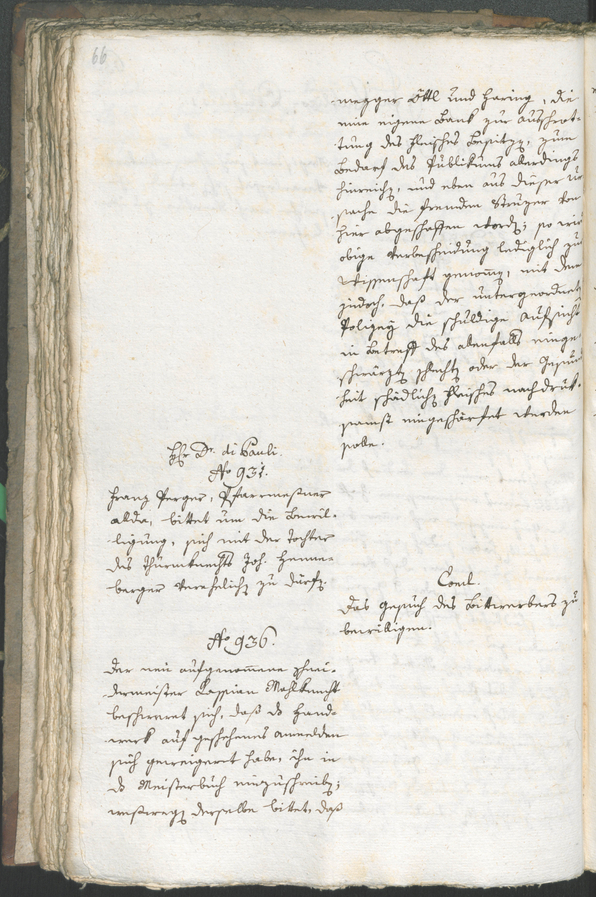 66
mezger Öttl und Haring, die
eine eigene Bank zur Aushack-
tung des Fleisches besitzen, zum
Bedarf des Publikums allerdings
hinreichen, und eben aus dieser Ur
sache die fremden Stecher von
hier abgeschaffen worden; so wird
obige Verbescheidung lediglich zur
Wissenschaft genommen, mit dem
jedoch, daß der untergeordneten
Polizey die schuldige Aufsicht
in Betreff des allenfalls einge
schwärzten schlechten oder der Gesund
heit schädlichen Fleisches nachdruk-
samst eingeschärfet werden
solle.
Hr. Dr. di Pauli.
No 931.
Franz Perger, Pfarrmeßner
allda, bittet um die Bewil-
ligung, sich mit der Tochter
des Thurmknechts Joh. Henne-
berger verehelichen zu dürfen.
Concl.
Das Gesuch des Bittwerbers zu
bewilligen.
No 936.
Der neu aufgenommene Schnei-
dermeister Cassian Mahlknecht
beschwert sich, daß ds Hand-
werk auf geschehenes Anmelden
sich geweigeret habe, ihn in
ds Meisterbuch einzuschreiben;
weßwegen derselbe bittet, daß